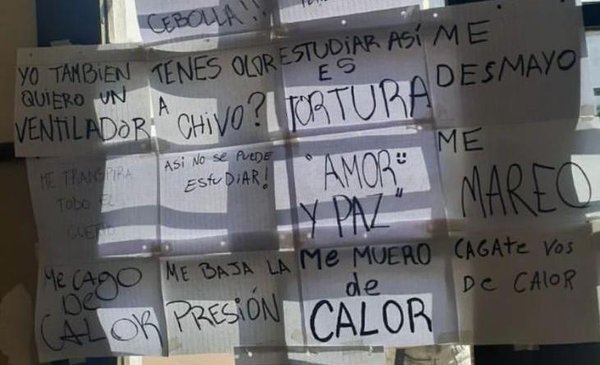 CEBOLLA!!
YO TAMBIEN
QUIERO UN
VENTILADOR
TENES OLOR
A
CHIVO?
ESTUDIAR ASÍ
ES
TORTURA
ME
DESMAYO
ME TRANSPIRA
TODO EL
ASI NO SE PUEDE
ESTUDIAR!
"AMOR
Y PAZ"
ME
MAREO
ME CAGO
DE
CALOR
ME BAJA LA
PRESIÓN
Me MUERO
de
CALOR
CAGATE VOS
DE CALOR